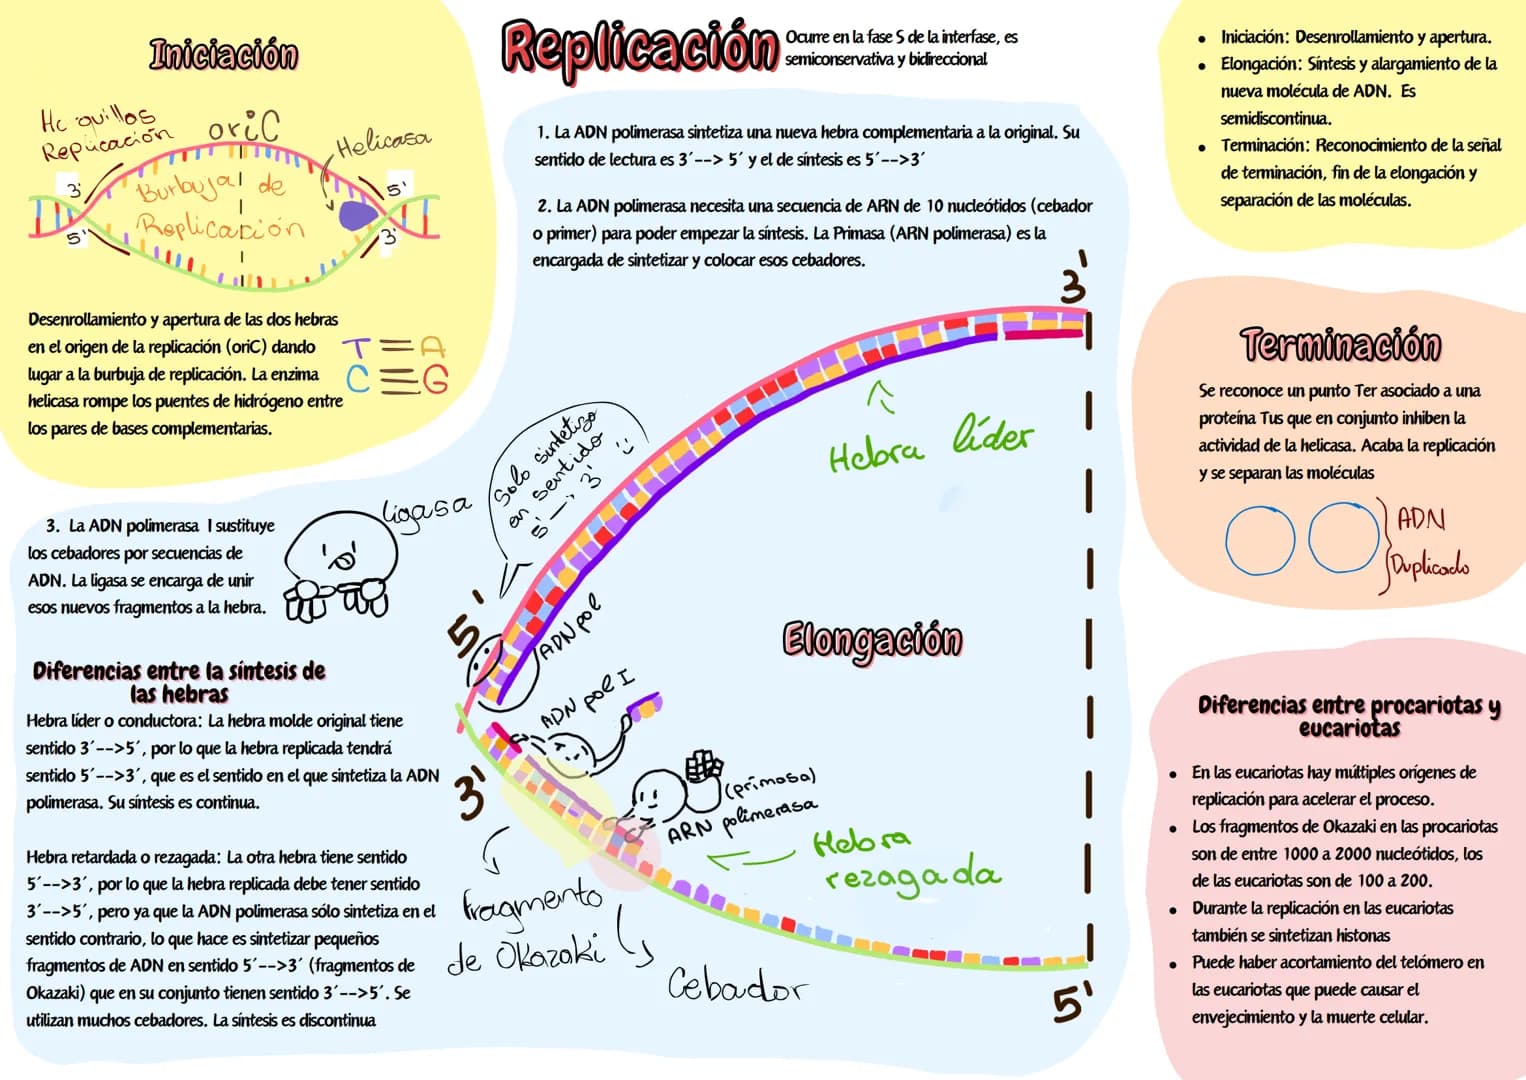 Replicación
Ocurre en la fase S de la interfase, es
semiconservativa y bidireccional
Iniciación
Horquillas
Replicación
oriC
Helicasa
3'
5'
5'
3'
Burbuja de
Replicación
Desenrollamiento y apertura de las dos hebras
en el origen de la replicación (oriC) dando
lugar a la burbuja de replicación. La enzima
helicasa rompe los puentes de hidrógeno entre
los pares de bases complementarias.
T = A
C ≡ G
1. La ADN polimerasa sintetiza una nueva hebra complementaria a la original. Su
sentido de lectura es 3´--> 5´ y el de síntesis es 5´-->3´
2. La ADN polimerasa necesita una secuencia de ARN de 10 nucleótidos (cebador
o primer) para poder empezar la síntesis. La Primasa (ARN polimerasa) es la
encargada de sintetizar y colocar esos cebadores.
3'
Hebra líder
Solo sintetizo
en sentido
5' → 3'
:)
5'
ADN pol
Elongación
ADN pol I
3'
(primasa)
ARN polimerasa
Hebra
rezagada
fragmento
de Okazaki
Cebador
5'
3. La ADN polimerasa I sustituye
los cebadores por secuencias de
ADN. La ligasa se encarga de unir
esos nuevos fragmentos a la hebra.
ligasa
Diferencias entre la síntesis de
las hebras
Hebra líder o conductora: La hebra molde original tiene
sentido 3´-->5´, por lo que la hebra replicada tendrá
sentido 5´-->3´, que es el sentido en el que sintetiza la ADN
polimerasa. Su síntesis es continua.
Hebra retardada o rezagada: La otra hebra tiene sentido
5´-->3´, por lo que la hebra replicada debe tener sentido
3´-->5´, pero ya que la ADN polimerasa sólo sintetiza en el
sentido contrario, lo que hace es sintetizar pequeños
fragmentos de ADN en sentido 5´-->3´ (fragmentos de
Okazaki) que en su conjunto tienen sentido 3´-->5´. Se
utilizan muchos cebadores. La síntesis es discontinua
• Iniciación: Desenrollamiento y apertura.
• Elongación: Síntesis y alargamiento de la
nueva molécula de ADN. Es
semidiscontinua.
• Terminación: Reconocimiento de la señal
de terminación, fin de la elongación y
separación de las moléculas.
Terminación
Se reconoce un punto Ter asociado a una
proteína Tus que en conjunto inhiben la
actividad de la helicasa. Acaba la replicación
y se separan las moléculas
ADN
Duplicado
Diferencias entre procariotas y
eucariotas
• En las eucariotas hay múltiples orígenes de
replicación para acelerar el proceso.
• Los fragmentos de Okazaki en las procariotas
son de entre 1000 a 2000 nucleótidos, los
de las eucariotas son de 100 a 200.
• Durante la replicación en las eucariotas
también se sintetizan histonas
• Puede haber acortamiento del telómero en
las eucariotas que puede causar el
envejecimiento y la muerte celular.